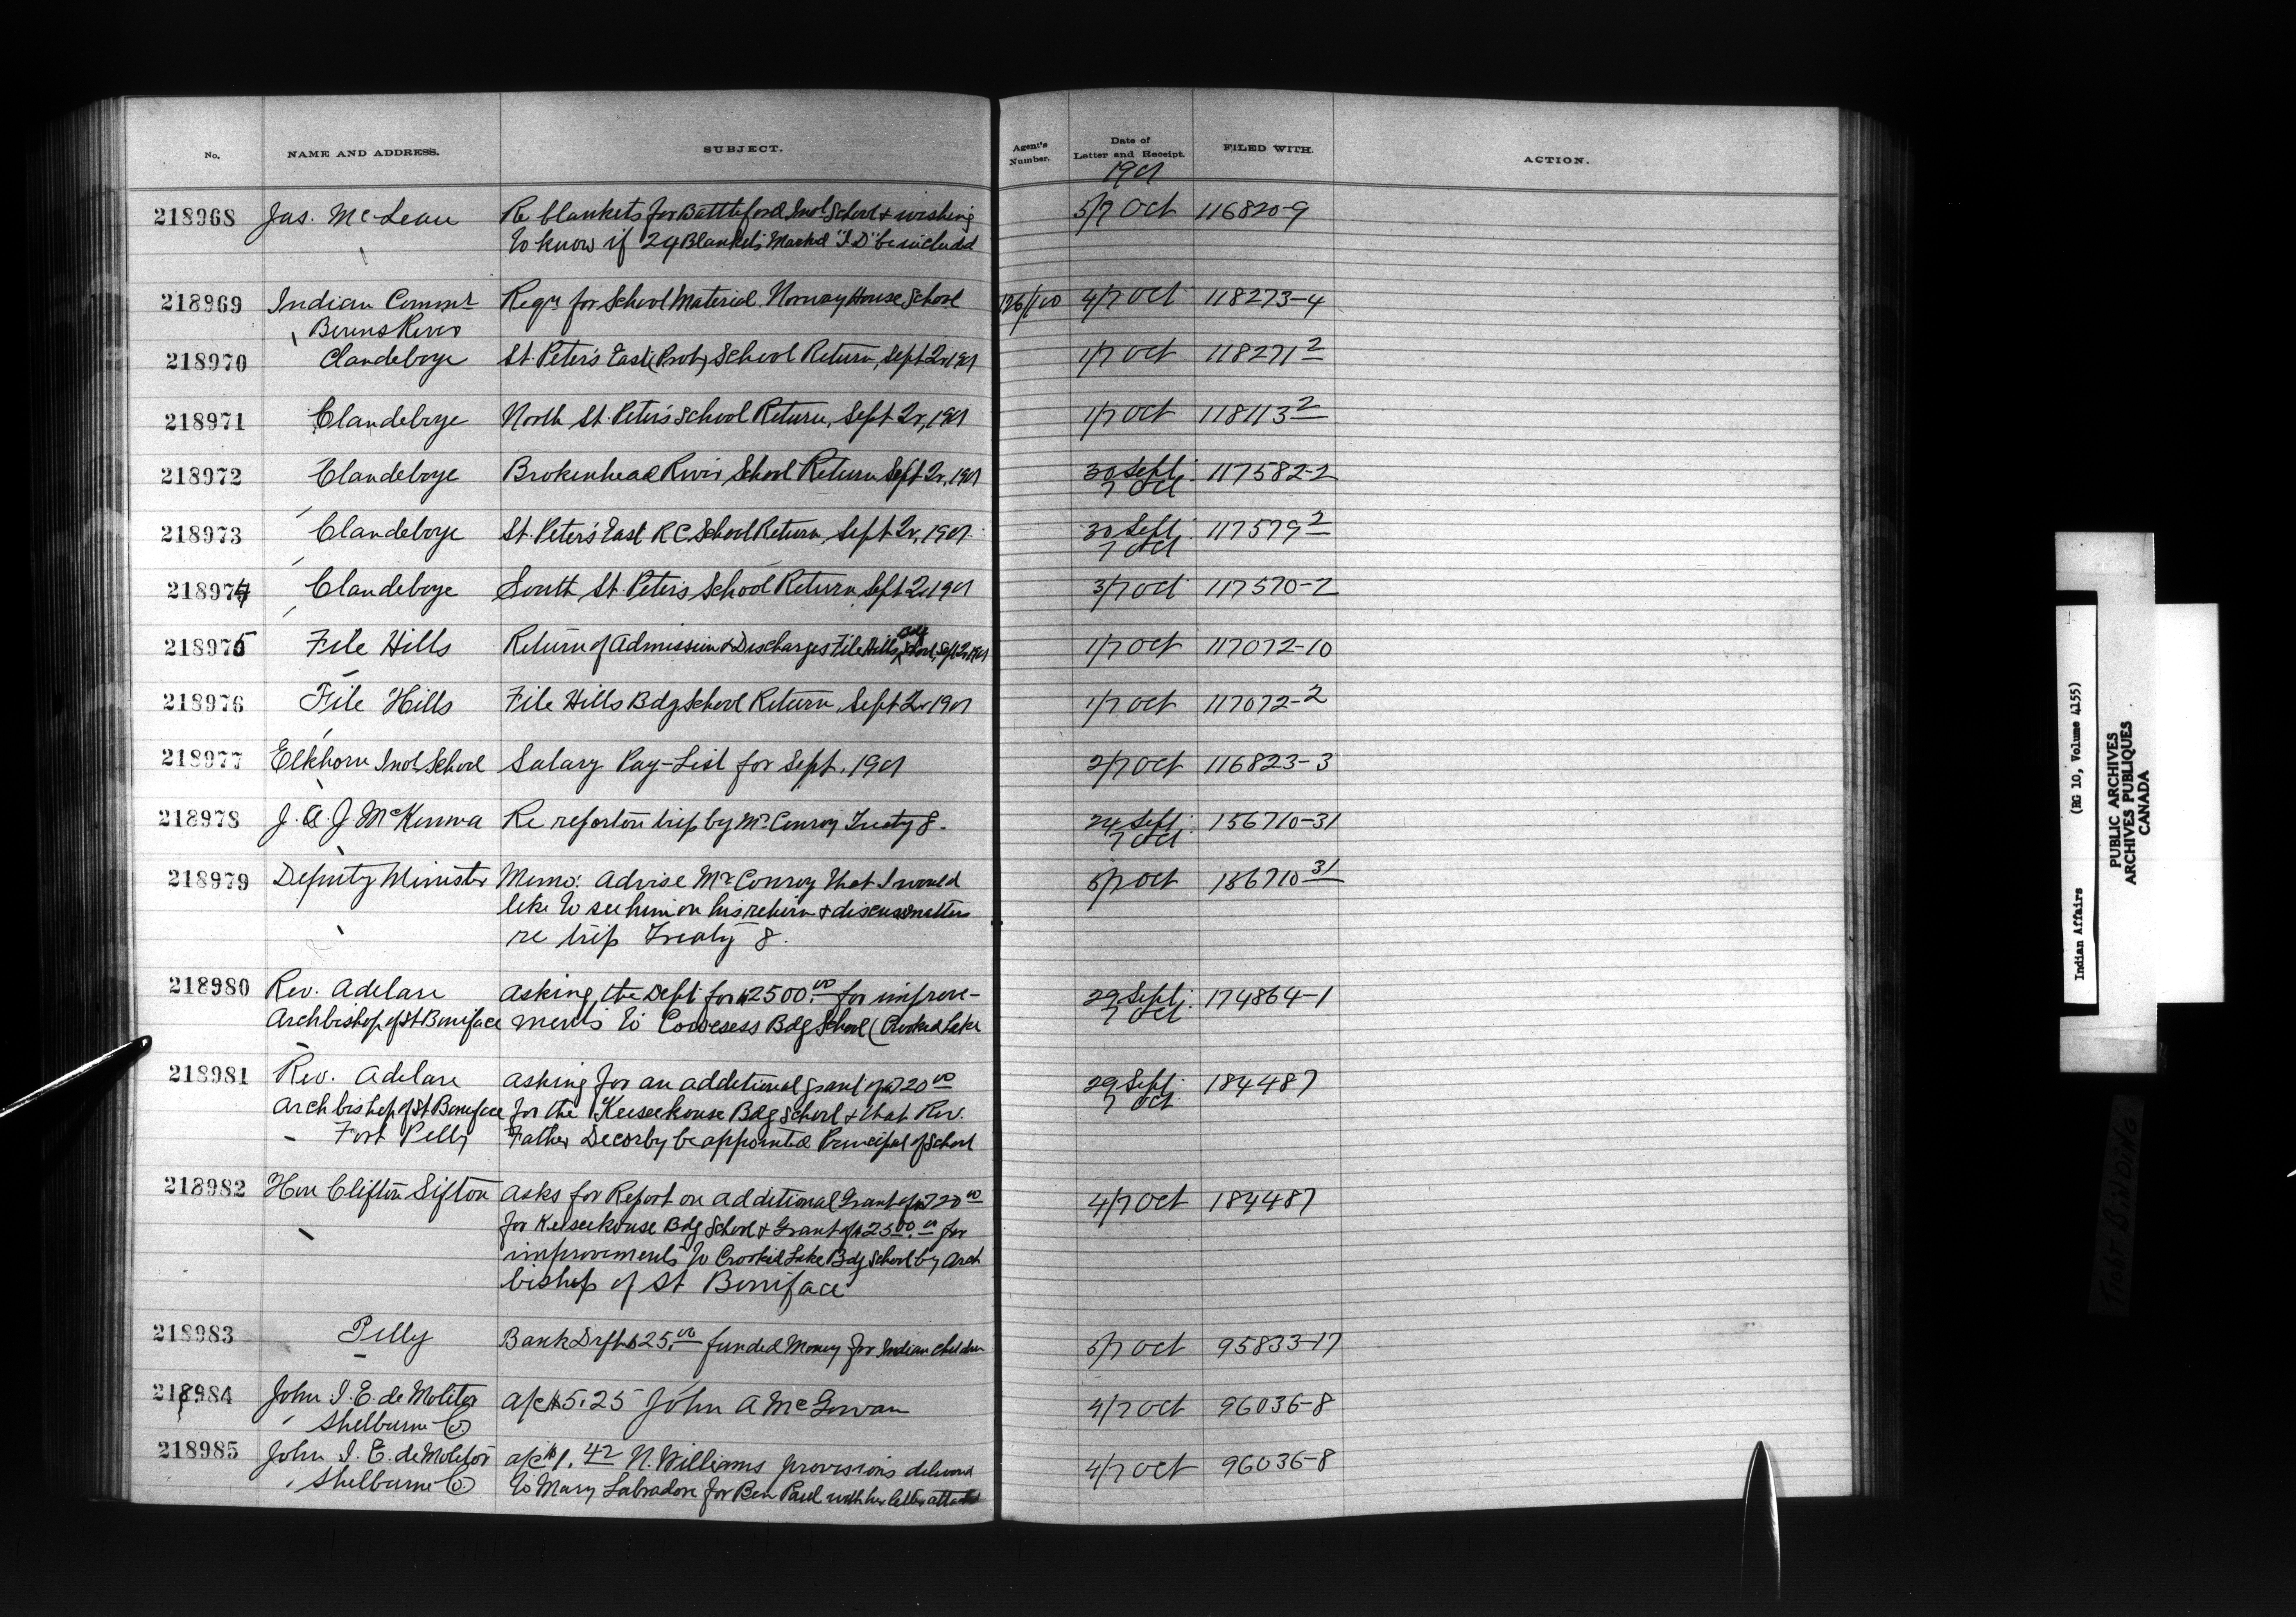 No. NAME AND ADDRESS. SUBJECT. Agent's Number. Date of Letter and Receipt. FILED WITH. ACTION.
1901
218968 Jas. McLean Re blankets for Battleford Indl School & wishing 5/7 Oct 116820-9
to know if 24 Blankets Marked "I D" be included
218969 Indian Commr Reqn for School Material Norway House School 126/100 4/7 Oct 118273-4
Berens River
218970 Clandeboye St. Peter's East (Prot) School Return, Sept Qr 1901 1/7 Oct 118271 2
218971 Clandeboye North St. Peter's School Return, Sept Qr, 1901 1/7 Oct 118113 2
218972 Clandeboye Brokenhead River School Return Sept Qr, 1901 30 Sept. 117582-2
7 Oct
218973 Clandeboye St. Peter's East R C School Return, Sept Qr, 1901 30 Sept. 117579 2
7 Oct
218974 Clandeboye South St. Peter's School Return, Sept Qr 1901 3/7 Oct 117570-2
218975 File Hills Return of Admission & Discharges File Hills Bdg School, Sept Qr, 1901 1/7 Oct 117072-10
218976 File Hills File Hills Bdg School Return, Sept Qr 1901 1/7 Oct 117072-2
218977 Elkhorn Indl School Salary Pay-List for Sept. 1901 2/7 Oct 116823-3
218978 J. A. J. McKenna Re report on trip by Mr Conroy Treaty 8. 24 Sept. 156710-31
7 Oct
218979 Deputy Minister Memo: Advise Mr Conroy that I would 5/7 Oct 156710 31
like to see him on his return & discuss matters
re trip Treaty 8.
218980 Rev. Adelard Asking the Dept for $2500.00 for improve- 29 Sept. 174864-1
7 Oct
Archbishop of St Boniface ments to Cowesess Bdg School (Crooked Lake
218981 Rev. Adelard Asking for an additional grant of $720 00 29 Sept. 184487
7 Oct
Archbishop of St Boniface for the Keeseekouse Bdg School & that Rev.
Fort Pelly Father Decorby be appointed Principal of School
218982 Hon Clifton Sifton Asks for Report on additional Grant of $720 00 4/7 Oct 184487
for Keeseekouse Bdg School & Grant of $2500.00 for
improvements to Crooked Lake Bdg School by Arch
bishop of St Boniface
218983 Pelly Bank Drft $25.00 funded Money for Indian children 5/7 Oct 95833-17
218984 John I. E. de Molitor a/c $5.25 John A McGowan 4/7 Oct 96036-8
Shelburne Co
218985 John I. E. de Molitor a/c $1.42 N. Williams provisions delivered 4/7 Oct 96036-8
Shelburne Co to Mary Labradore for Ben Paul with her letter attached
Indian Affairs (RG 10, Volume 4155)
PUBLIC ARCHIVES
ARCHIVES PUBLIQUES
CANADA
TIGHT BINDING